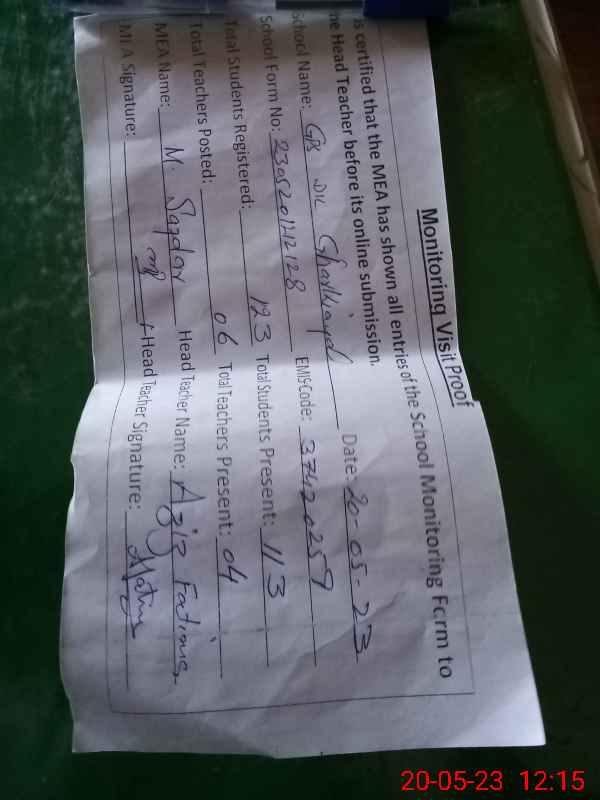 Monitoring Visit Proof
is certified that the MEA has shown all entries of the School Monitoring Form to
he Head Teacher before its online submission.
School Name: GPS DK Date: 20-05-23
School Form No: 2305201212128 EMIS Code: 37420259
Total Students Registered: 123 Total Students Present: 113
Total Teachers Posted: 06 Total Teachers Present: 04
MEA Name: M. Safdar Head Teacher Name: Aziz Fatima
MEA Signature: Head Teacher Signature:
20-05-23 12:15